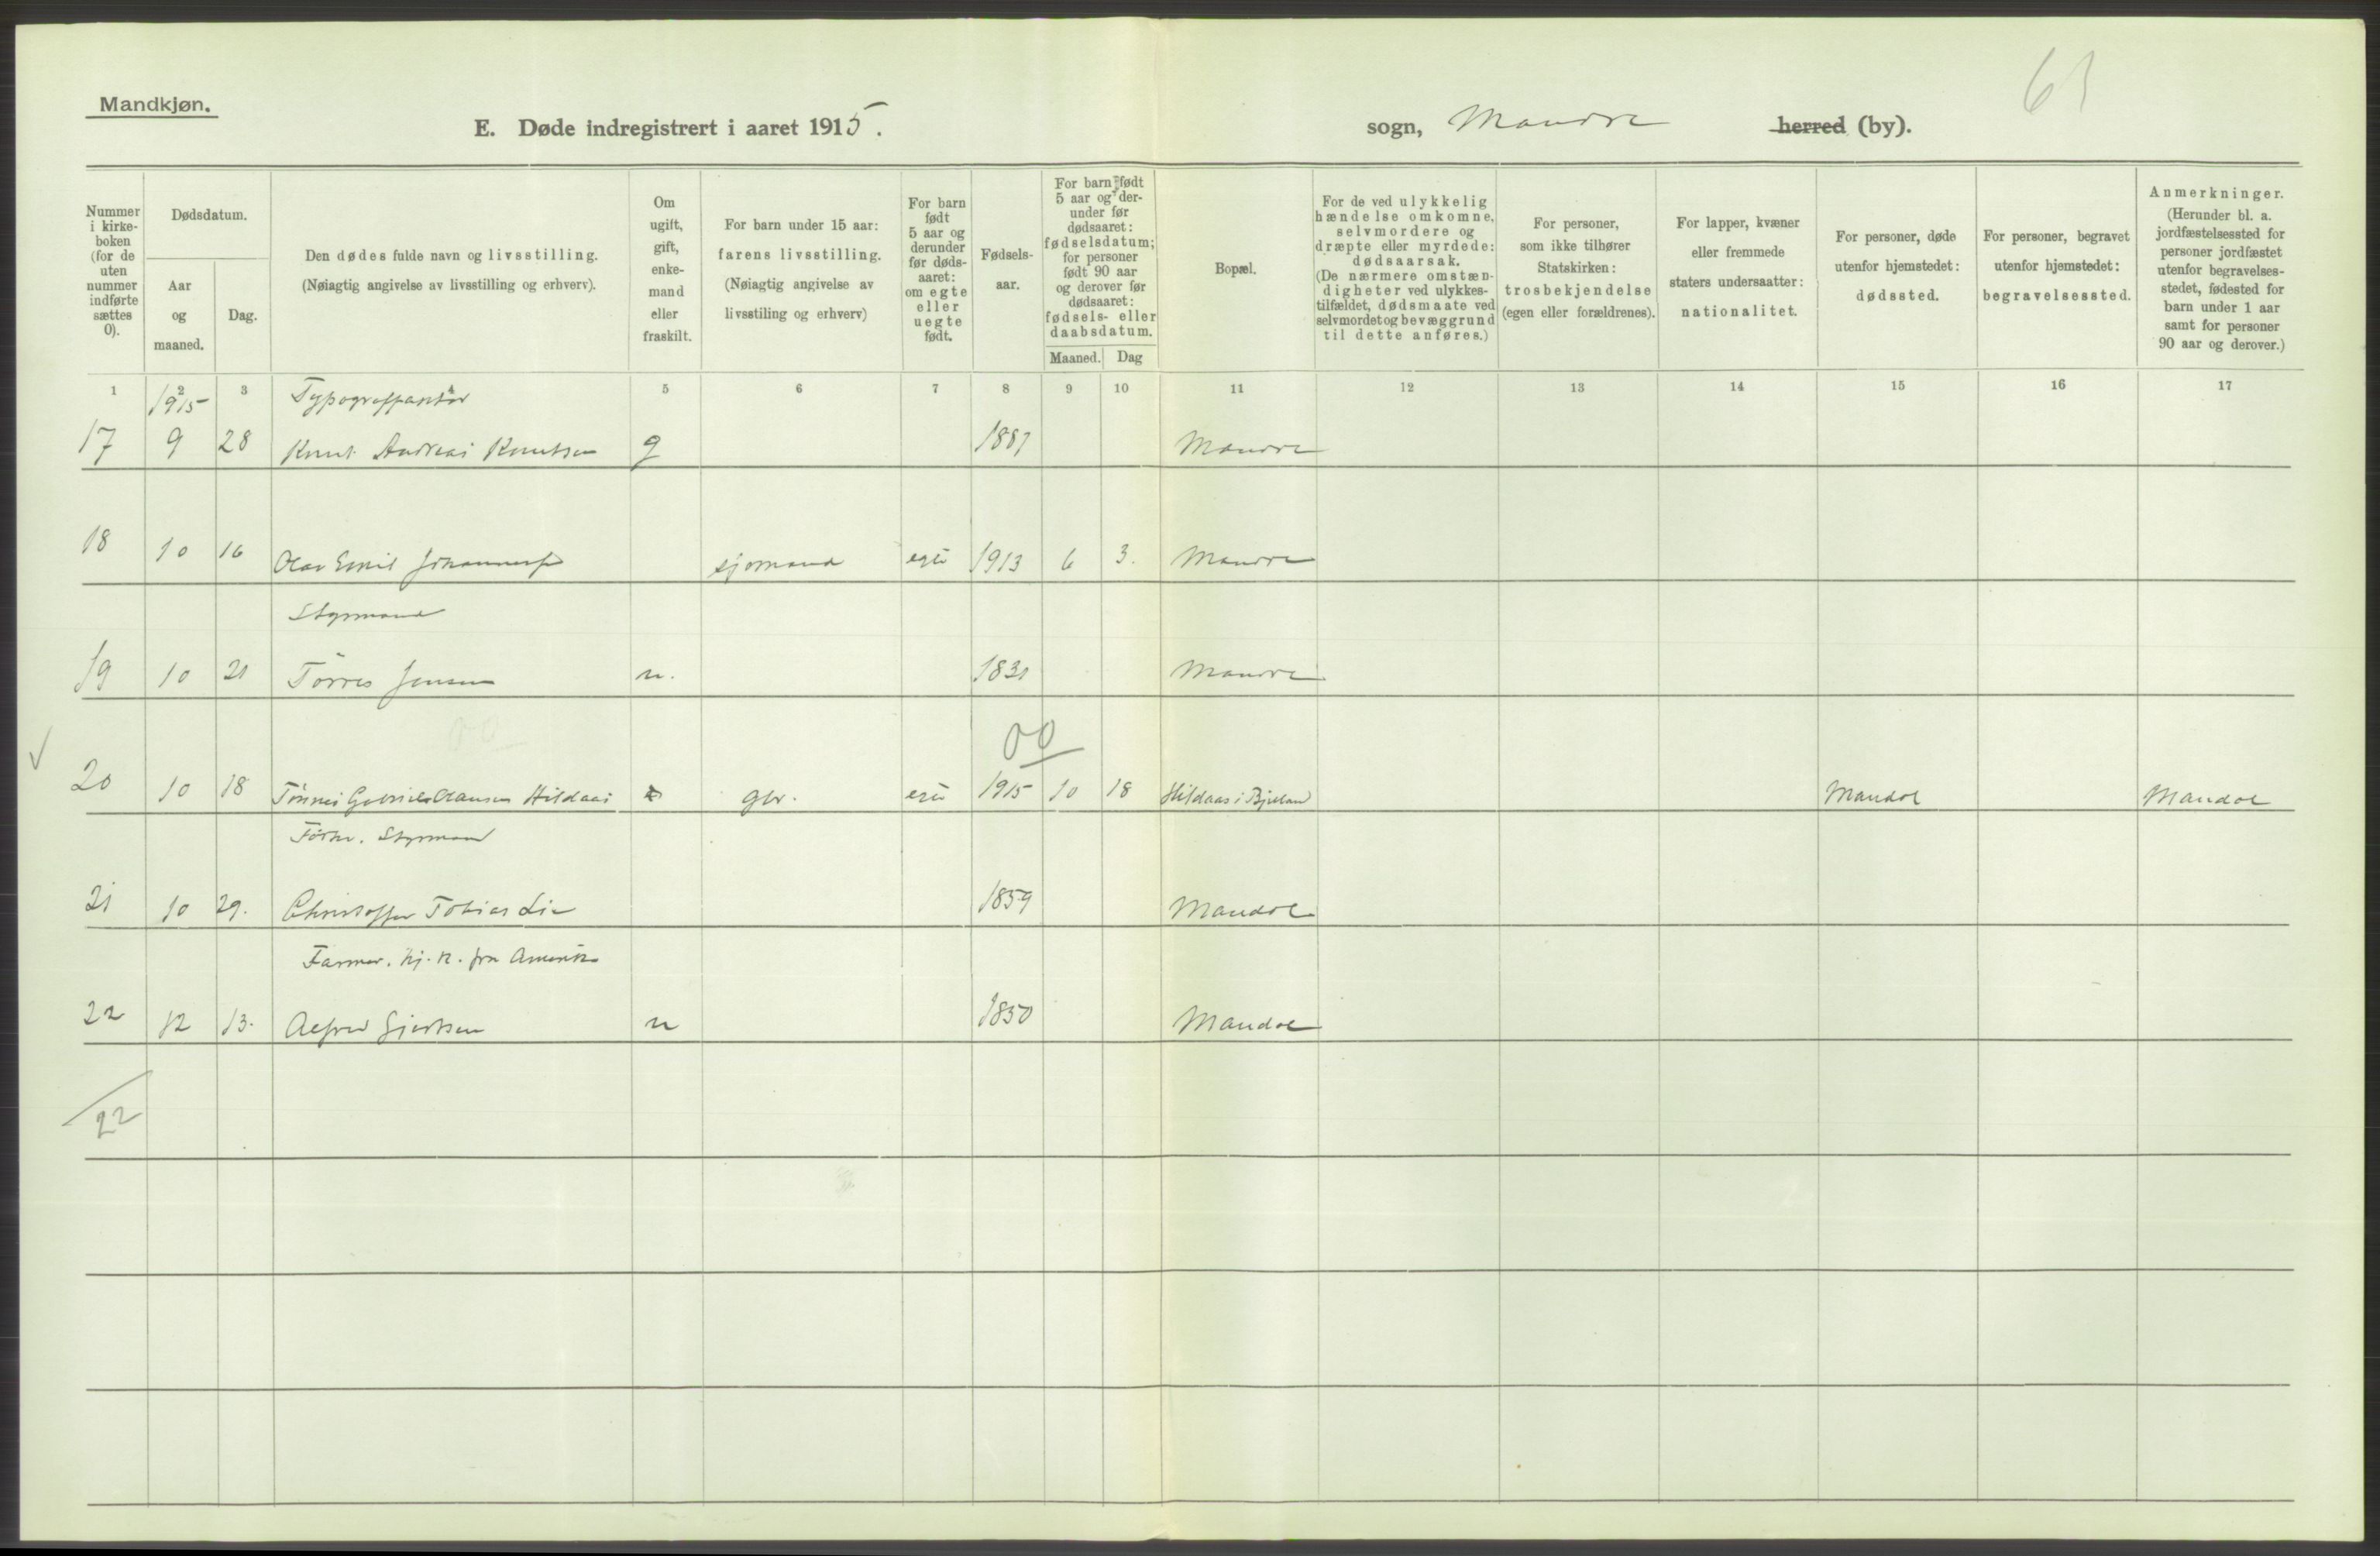 Mandkjøn.
61
E. Døde indregistrert i aaret 1915.
sogn, Mandal herred (by).
Nummer i kirkeboken (for de uten nummer indførte sættes 0).
Dødsdatum.
Aar og maaned.
Dag.
Den dødes fulde navn og livsstilling.
(Nøiagtig angivelse av livsstilling og erhverv).
Om ugift, gift, enkemand eller fraskilt.
For barn under 15 aar: farens livsstilling.
(Nøiagtig angivelse av livsstiling og erhverv)
For barn født 5 aar og derunder før dødsaaret: om egte eller uegte født.
Fødselsaar.
For barn født 5 aar og derunder før dødsaaret: fødselsdatum; for personer født 90 aar og derover før dødsaaret: fødsels- eller daabsdatum.
Maaned. Dag
Bopæl.
For de ved ulykkelig hændelse omkomne, selvmordere og dræpte eller myrdede: dødsaarsak.
(De nærmere omstændigheter ved ulykkestilfældet, dødsmaate ved selvmordet og bevæggrund til dette anføres.)
For personer, som ikke tilhører Statskirken: trosbekjendelse (egen eller forældrenes).
For lapper, kvæner eller fremmede staters undersaatter: nationalitet.
For personer, døde utenfor hjemstedet: dødssted.
For personer, begravet utenfor hjemstedet: begravelsessted.
Anmerkninger.
(Herunder bl. a. jordfæstelsessted for personer jordfæstet utenfor begravelsesstedet, fødested for barn under 1 aar samt for personer 90 aar og derover.)
1 2 3 4 5 6 7 8 9 10 11 12 13 14 15 16 17
1915
17 9 28 Knut Andreas Knutsen g 1887 Mandal
18 10 16 Olav Emil Johannesen sjømand egte 1913 6 3. Mandal
Styrmand
19 10 21 Tørres Jensen u. 1831 Mandal
00
20 10 18 Tønnes Gabriel Clausen Hildaas gbr. egte 1915 10 18 Hildaas i Bjelland Mandal Mandal
Forhv. Styrmand
21 10 29. Christoffer Tobias Lie 1859 Mandal
Farmer. hj. k. fra Amerika
22 12 13. Alfred Gjertsen u 1850 Mandal
22